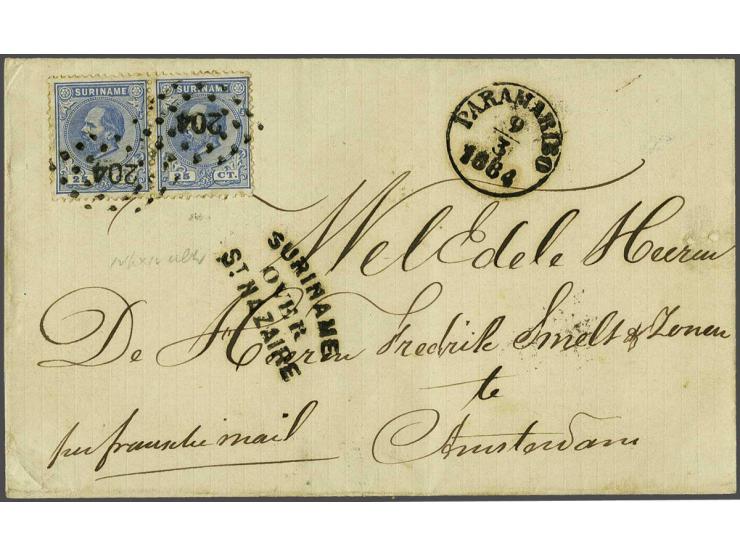 SURINAME SURINAME
204 204
25 25 CT.
PARAMARIBO
9
3
1884
SURINAME
OVER
ST. NAZAIRE
Wel Edele Heeren
De Heeren Fredrik Smelt & Zonen
te
Amsterdam
per fransche mail